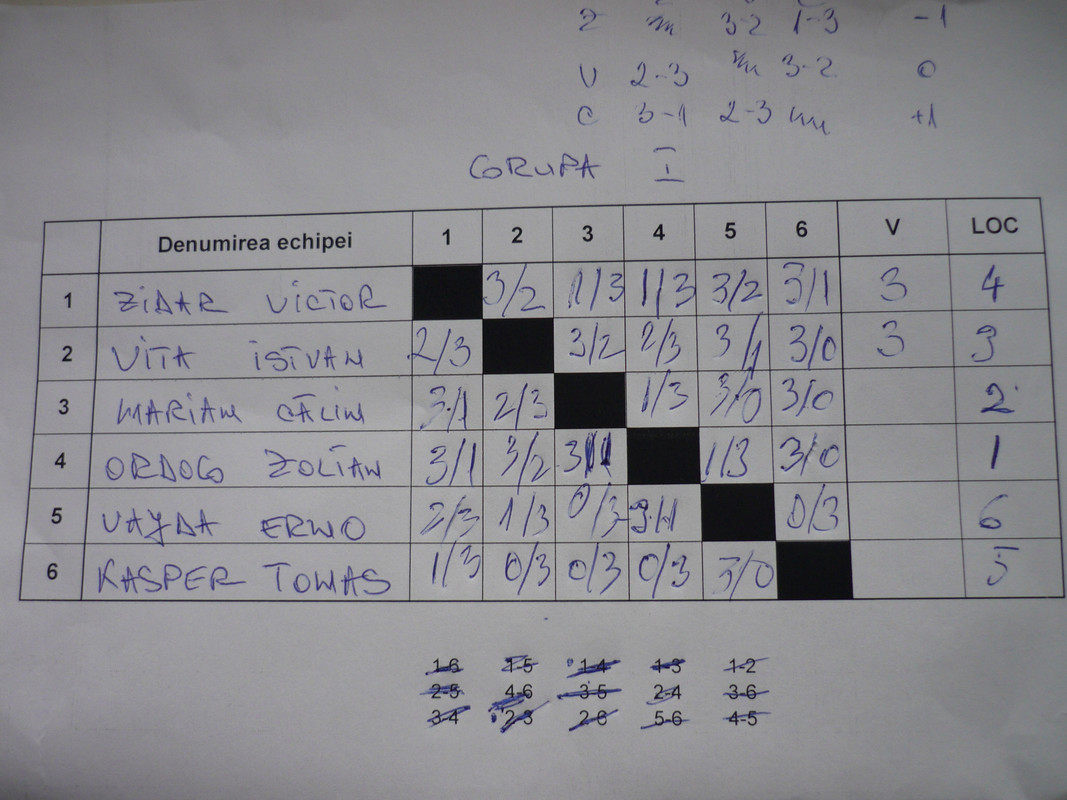 Z 3-2 1-3 -1
V 2-3 3-2 0
C 3-1 2-3 +1
GRUPA I
Denumirea echipei 1 2 3 4 5 6 V LOC
1 ZIDAR VICTOR 3/2 1/3 1/3 3/2 3/1 3 4
2 VITA ISTVAN 2/3 3/2 2/3 3/1 3/0 3 3
3 MARIAN CĂLIN 3/1 2/3 1/3 3/0 3/0 2
4 ORDOG ZOLTAN 3/1 3/2 3/1 1/3 3/0 1
5 VAYDA ERNO 2/3 1/3 0/3 3/1 0/3 6
6 KASPER TOMAS 1/3 0/3 0/3 0/3 3/0 5
1-6 1-5 1-4 1-3 1-2
2-5 4-6 3-5 2-4 3-6
3-4 2-3 2-6 5-6 4-5